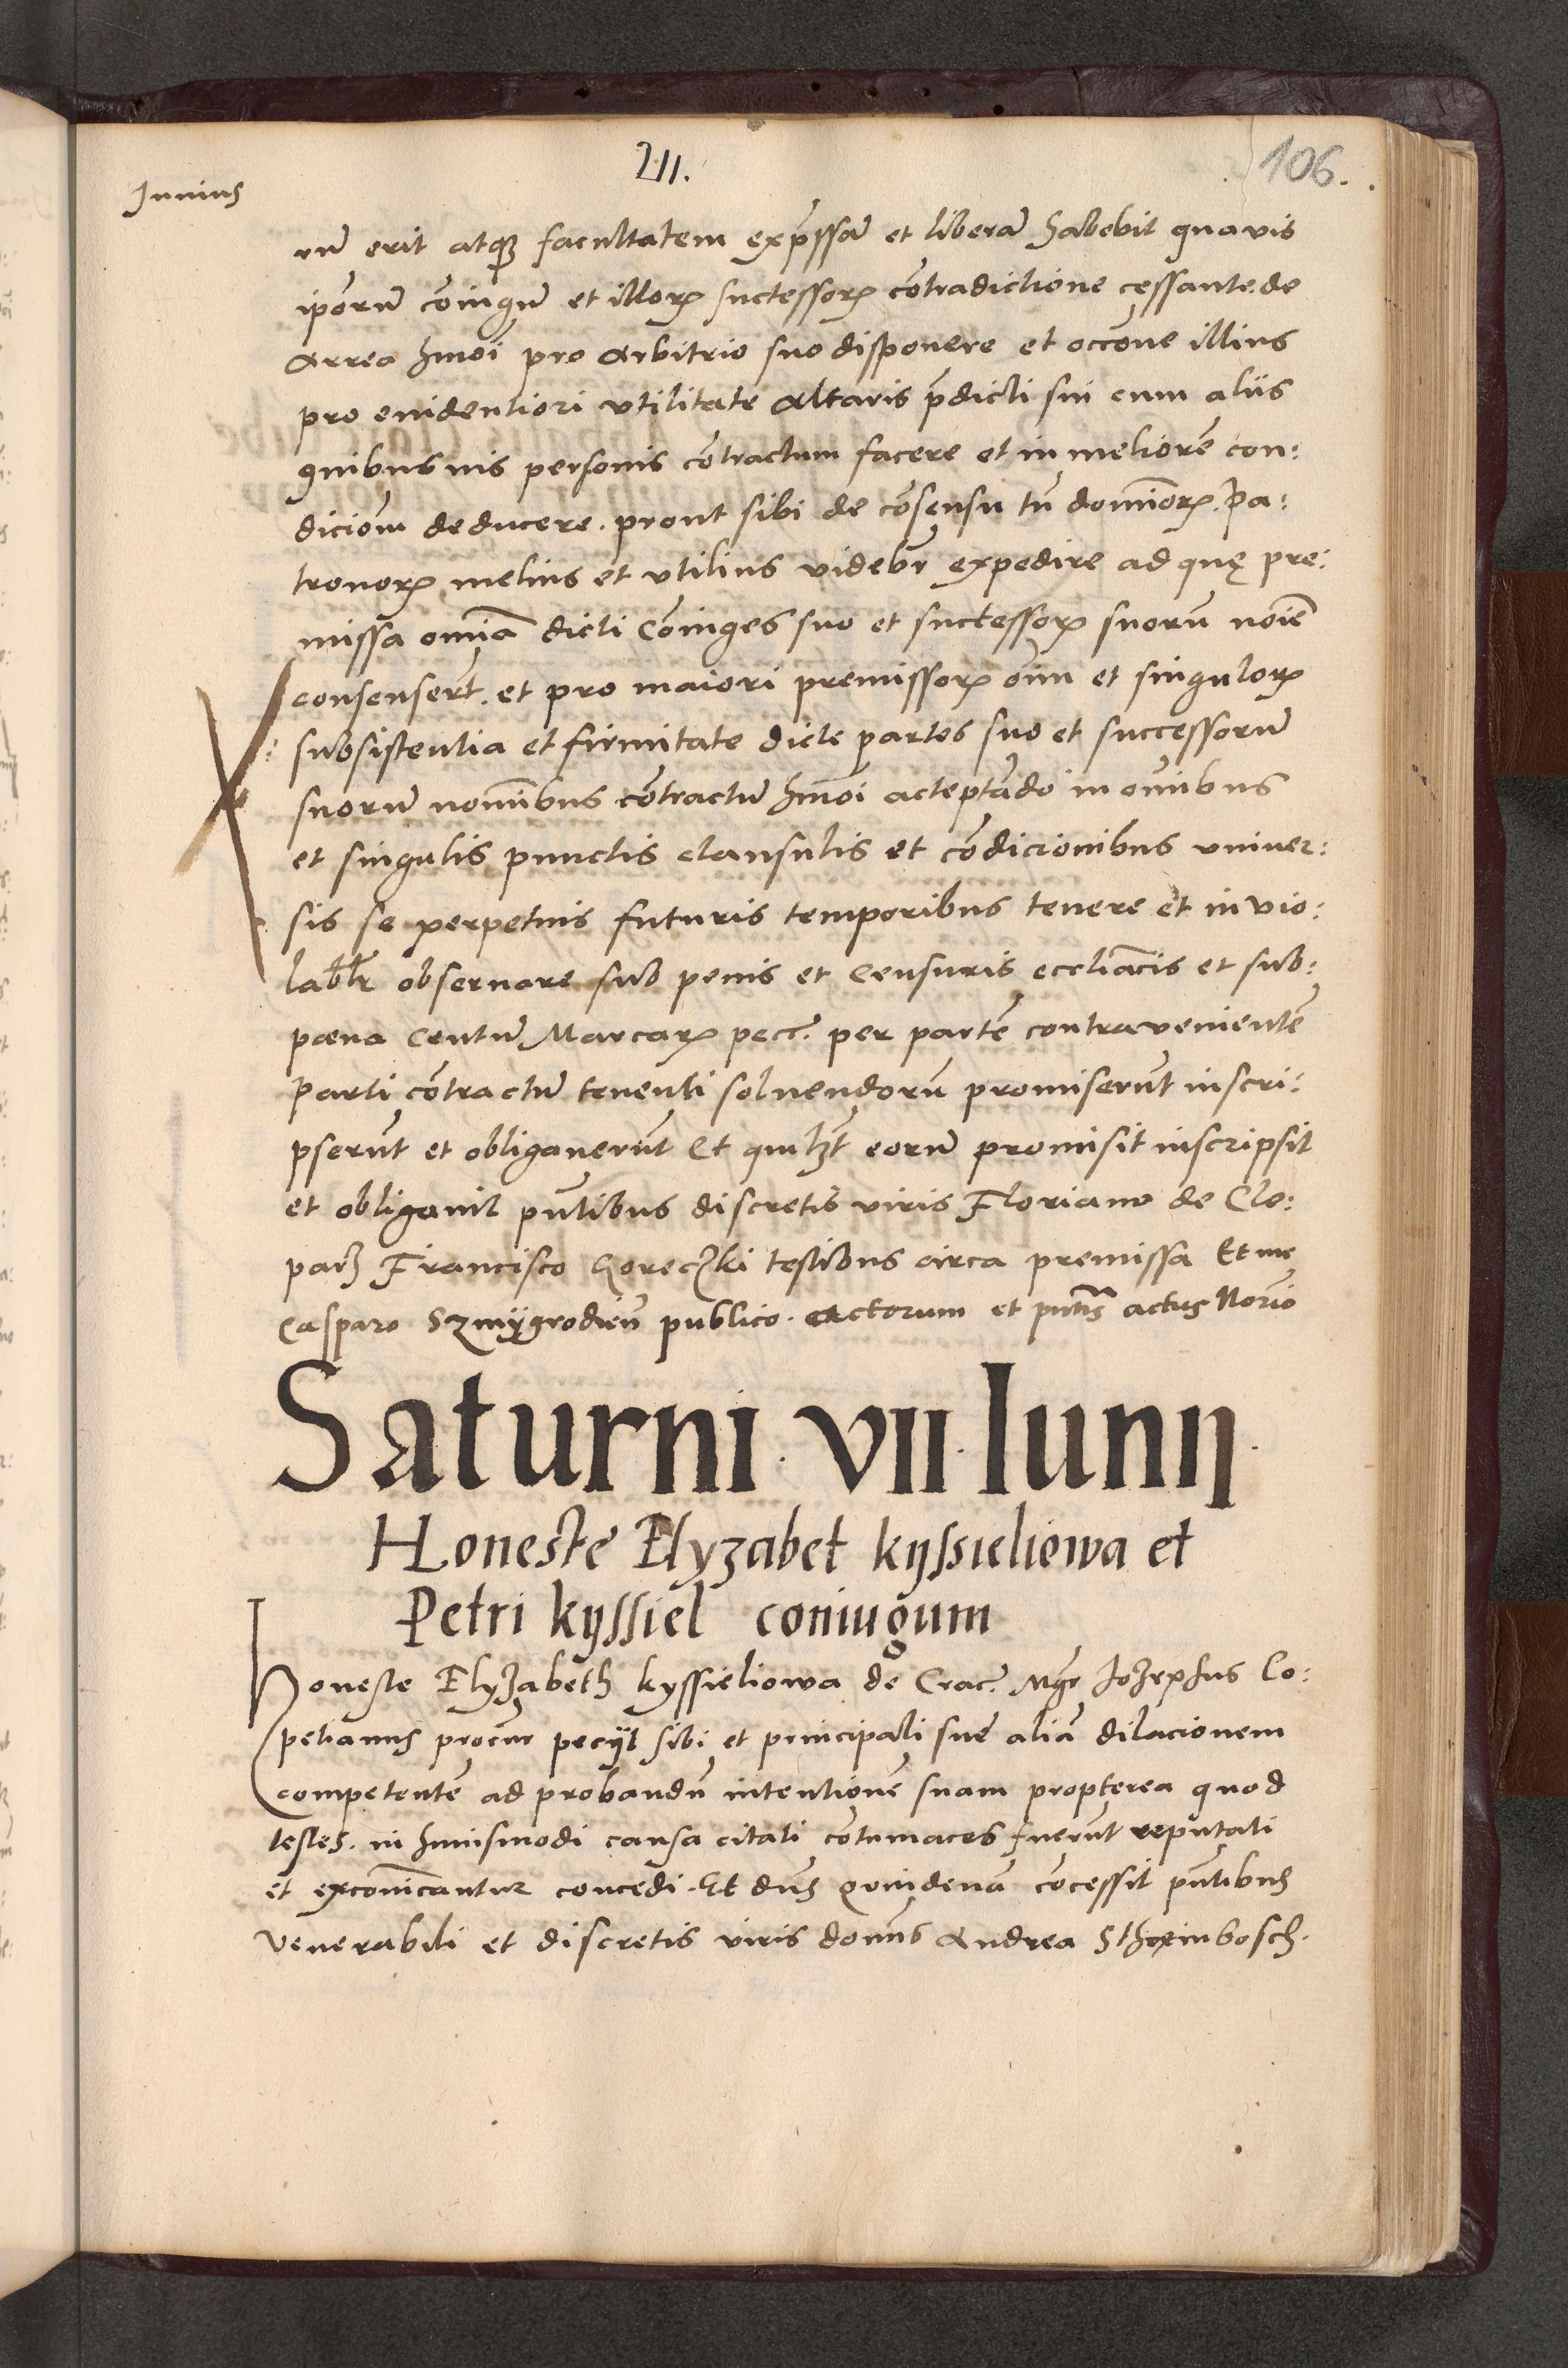 Junius
211.
106.
rum erit atq[ue] facultatem exp̄ssā et liberā habebit quavis
ip̄orum cōiugū et illoꝝ successoꝝ cōtradictione cessante de
Arrea hmōi pro arbitrio suo disponere et occōne illius
pro euidentiori utilitate Altaris p̄dicti sui cum aliis
quibus uis personis cōtractum facere et in meliorē con:
diciom̄ deducere. prout sibi de cōsensu tn̄ domīoꝝ. Pa:
tronoꝝ melius et utilius videbr̄ expedire ad quę pre:
missa omīa dicti Cōiuges suo et successoꝝ suorū noīe
consensert̄. et pro maiori premissoꝝ oīm et singuloꝝ
subsistentia et firmitate dicte partes suo et successorū
suorū nomībus cōtractū hmōi acceptādo in omībus
et singulis punctis clausulis et cōdicionibus univer:
sis se perpetuis futuris temporibus tenere et in vio:
labl̄r observare sub penis et Censuris eccliācis et sub:
pœna Centū Marcaꝝ pecc̄. per partē contravenientē
Parti cōtractū tenenti soluendorū promiserūt inscri:
pserūt et obligaverūt Et quilꝫt eorū promisit inscripsit
et obligavit pn̄tibus discretis viris Floriano de Cle:
parꝫ Francisco Goreczki testibus circa premissa Et me
Casparo Szmÿgrodien̄ publico. actorum et pn̄tis actus Norīo
Saturni . VII . Iunij .
Honeste Elyzabet kyssieliowa et
Petri kyssiel coniugum
Honeste Elyzabeth kyssieliowa de Crac̄. Mgr̄ Jozephus Co:
petianus procur̄ petijt sibi et principali sue aliā dilacionem
competentē ad probandū intentionē suam propterea quod
testes. in huiusmodi causa citati cōtumaces fuerūt reputati
et excōnicantur concedi. Et dn̄s quindenā cōcessit pn̄tibus
Venerabili et discretis viris domīs Andrea Sthoximbosch.